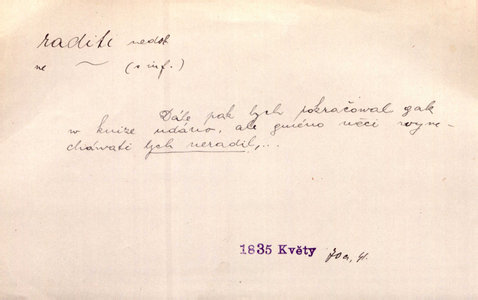 raditi nedok
ne ~ (s inf.)
Dále pak bych pokračoval gak
w knize udáno, ale gméno wěci wyne-
cháwati bych neradil,...
1835 Květy